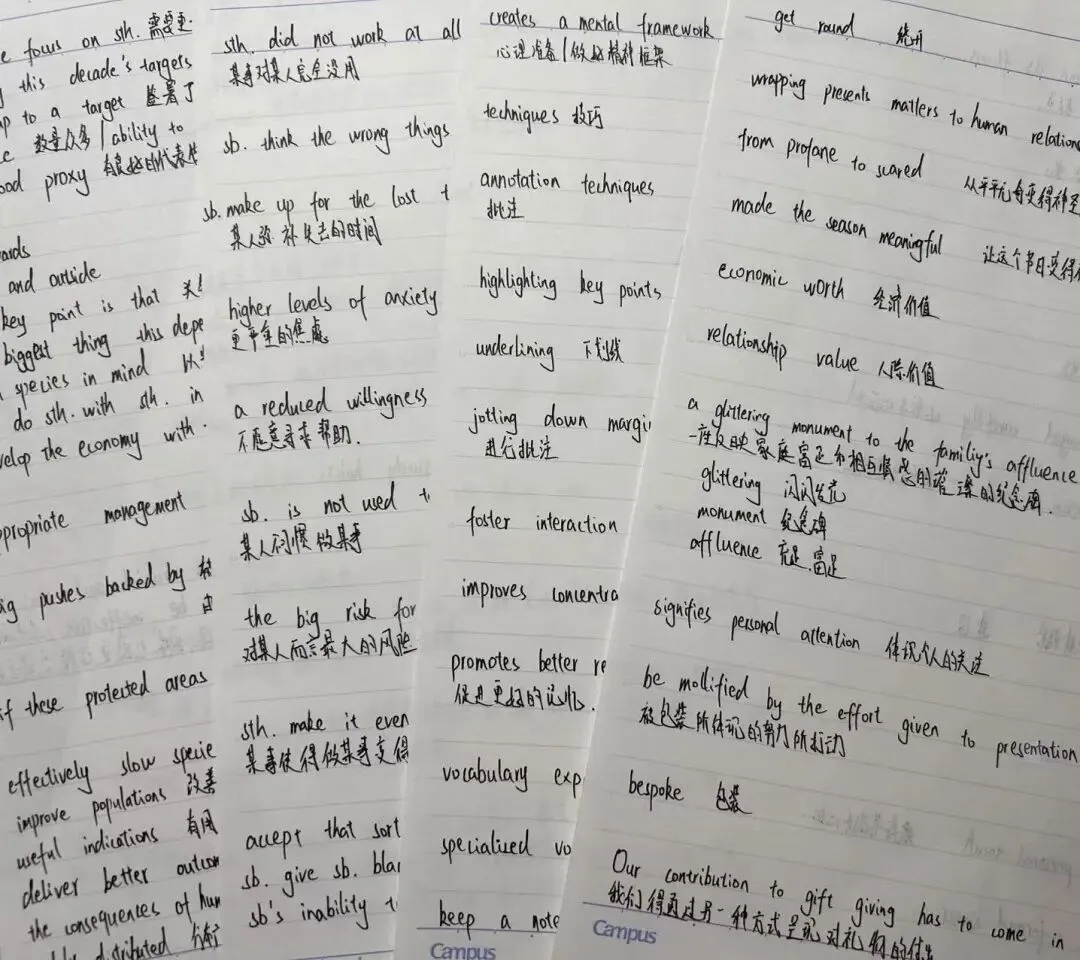 focus on sth. 需要更
this decade's targets
p to a target 签署了
数量众多 / ability to
ood proxy 有良好的代表性
ards
and outside
key point is that 关键
biggest thing this depe
species in mind 以
do sth. with sth. in
velop the economy with
ppropriate management
ig pushes backed by
由
if these protected areas
effectively slow specie
improve populations 改善
useful indications 有用
deliver better outcom
the consequences of hum
distributed 分布
sth. did not work at all
某事对某人完全没用
sb. think the wrong things
sb. make up for the lost t
某人弥补失去的时间
higher levels of anxiety
更严重的焦虑
a reduced willingness
不愿意寻求帮助.
sb. is not used t
某人不习惯做某事
the big risk for
对某人而言最大的风险
sth. make it even
某事使得做某事变得
accept that sort
sb. give sb. blan
sb's inability t
creates a mental framework
心理准备 / 做好精神框架
techniques 技巧
annotation techniques
批注
highlighting key points
underlining 下划线
jotting down margi
进行批注
foster interaction
improves concentra
promotes better re
促进更好的记忆.
vocabulary exp
specialized vo
keep a note
Campus
get round 绕开
wrapping presents matters to human relation
from profane to scared 从平平无奇变得神圣
made the season meaningful 让这个节日变得有
economic worth 经济价值
relationship value 人际价值
a glittering monument to the familiy's affluence
一座反映家庭富足和相互慷慨的璀璨的纪念碑.
glittering 闪闪发光
monument 纪念碑
affluence 充足.富足
signifies personal attention 体现个人的关注
be mollified by the effort given to presentation
被包装所体现的努力所打动
bespoke 包装
Our contribution to gift giving has to come in
我们得通过另一种方式呈现对礼物的付出
Campus